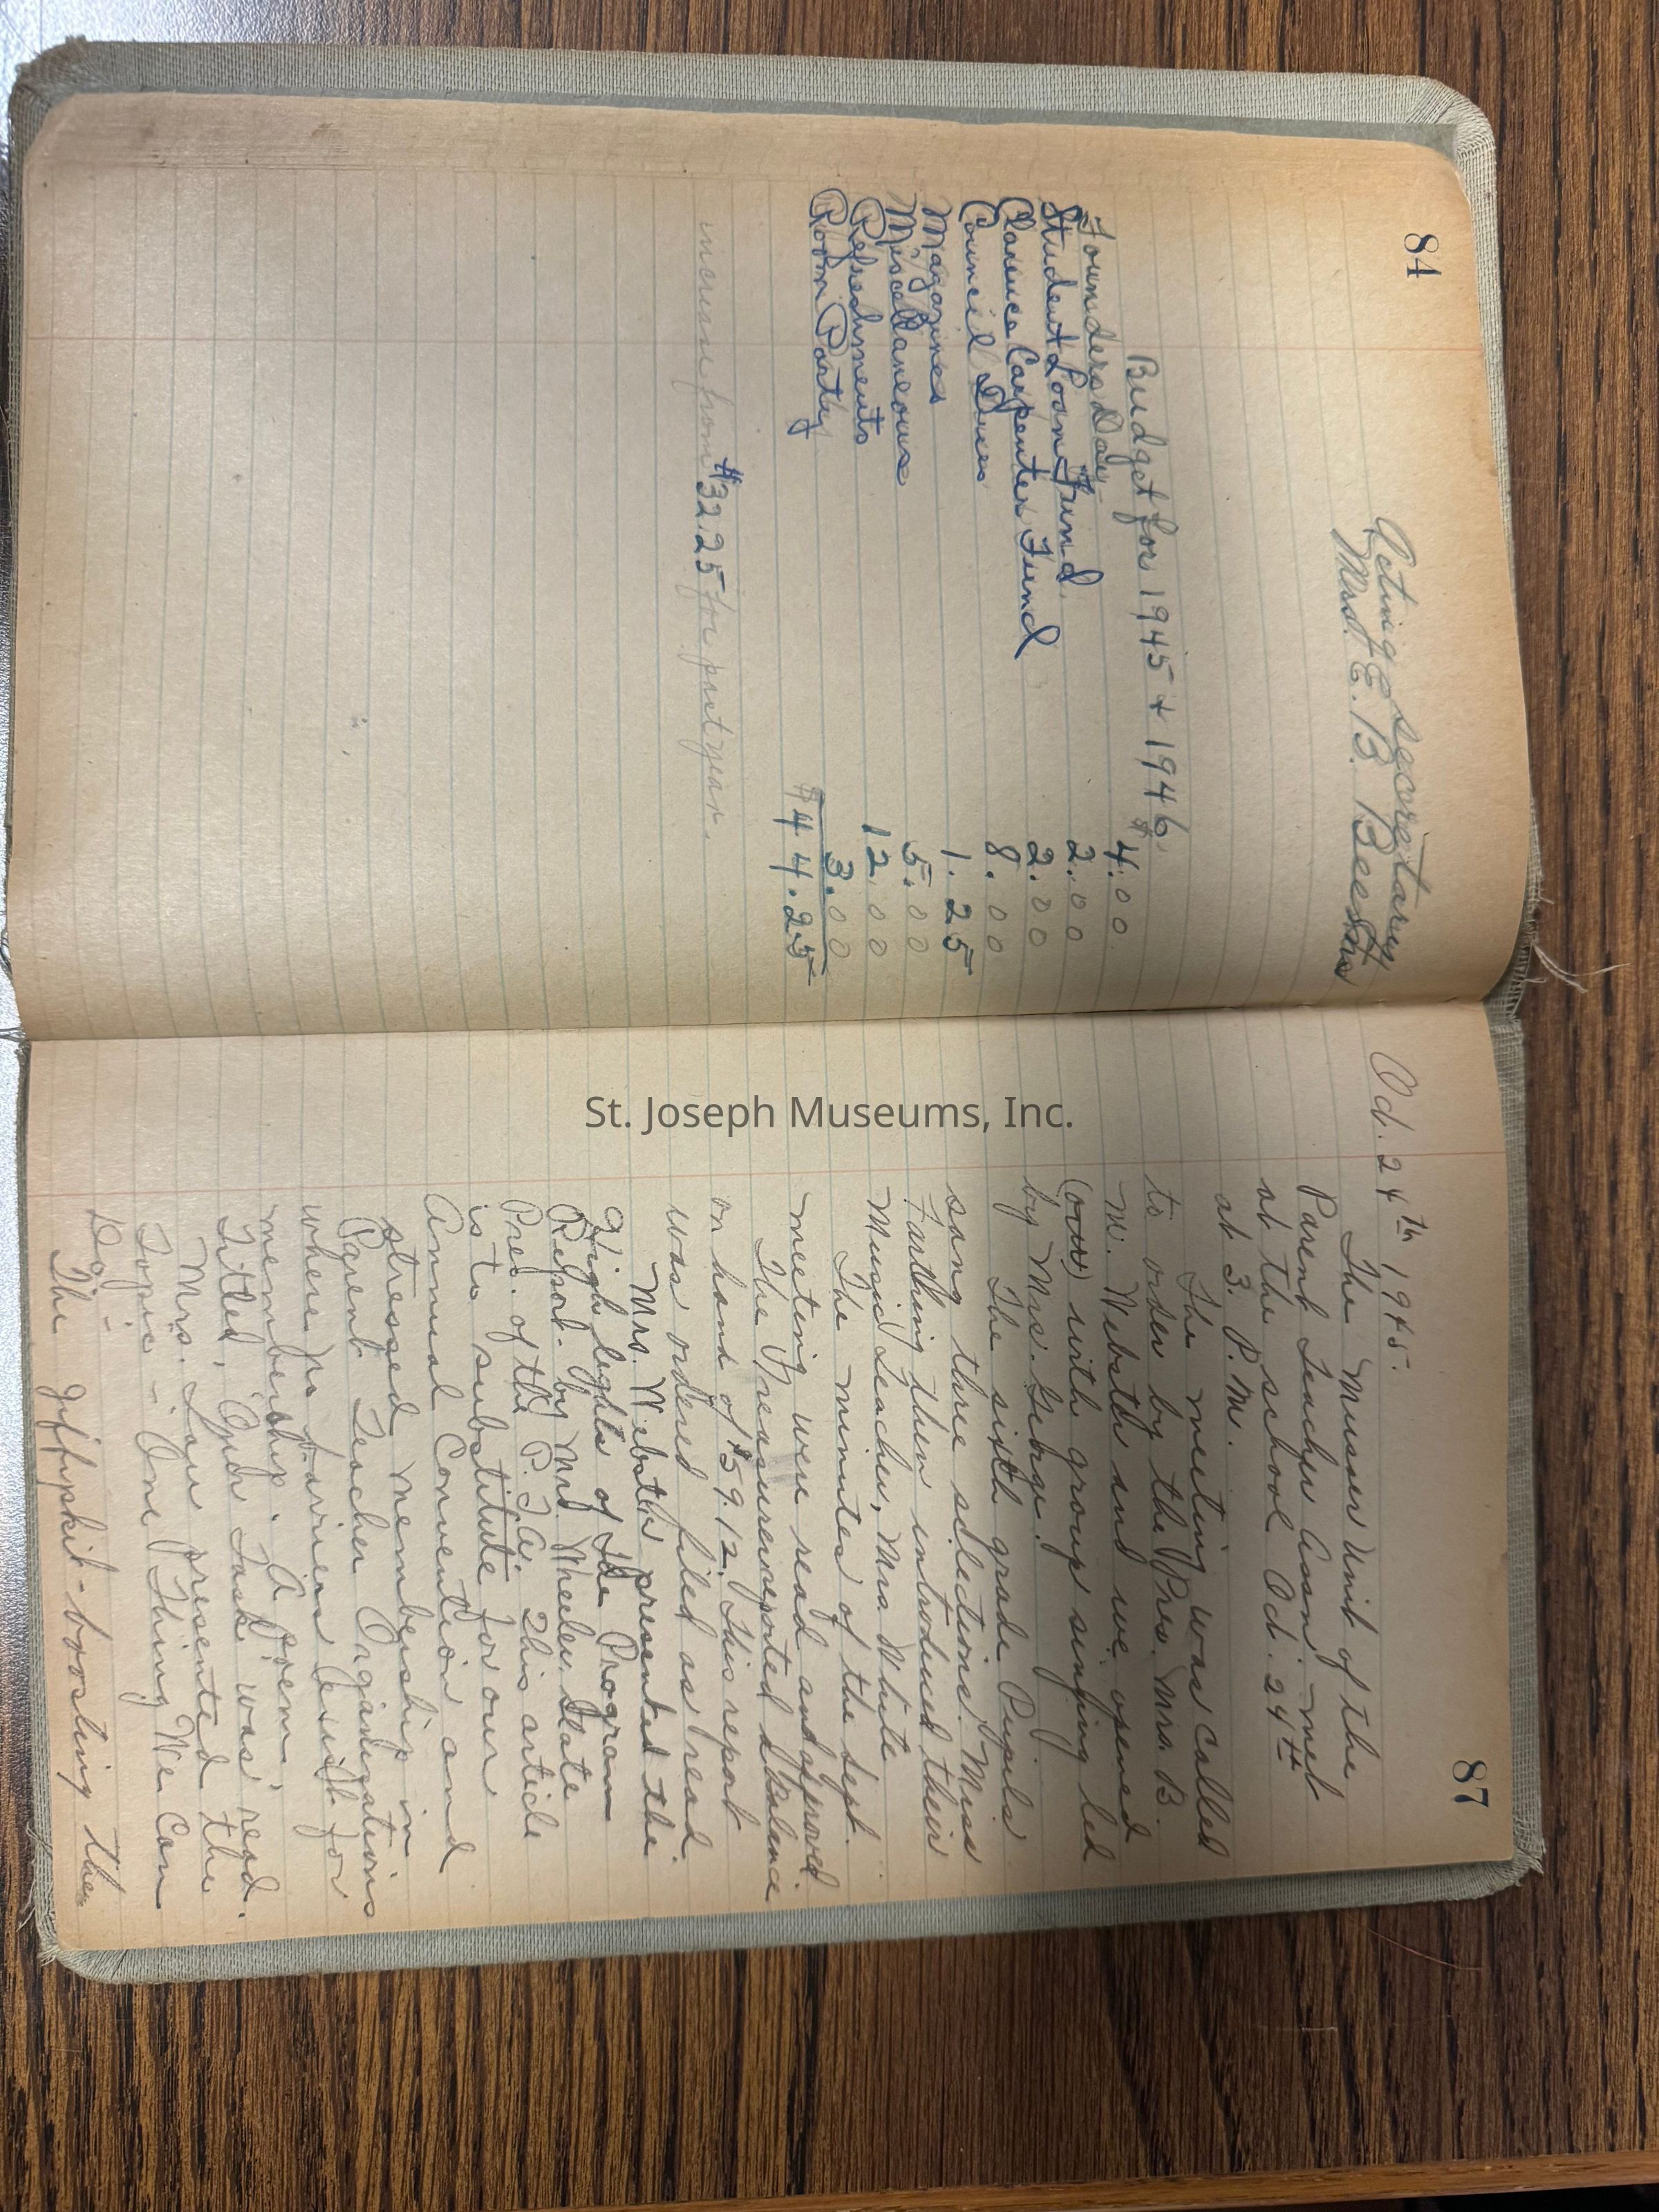 84
Acting secoretary
Mrs. E. B. Beests
Budget for 1945 + 1946
Founders Day $4.00
Student Loan Fund. 2.00
Clarence Carpenter Fund 2.00
Council Dues 8.00
Magazines 1.25
Miscellaneous 5.00
Refreshments 12.00
Room Party 3.00
$44.25
increase from $32.25 for past year.
87
Oct. 24th 1945.
The Musser Unit of the
Parent Teacher Assn. met
at the school Oct. 24th
at 3. P.M.
The meeting was called
to order by the Pres. Mrs. B.
M. Webster and we opened
with group singing led
by Mrs. George.
The sixth grade Pupils
sang three selections. Miss
Farthing then introduced their
Music Teacher, Mrs White
The minutes of the Sept.
meeting were read and approved.
The Treasurer reported a Balance
on hand of $59.12. This report
was ordered filed as read.
Mrs. Webster presented the
High lights of the Program
Report. by Mrs. Wheeler. State
Pres. of the P.T.A. This article
is to substitute for our
Annual Convention and
stressed membership in
Parent Teacher Organizations
where no barriers exist for
membership. A Poem,
Titled, Our Task" was read.
Mrs. Lau presented the
Topic - One Thing We Can
Do -
The Jiffyskit - boosting the
St. Joseph Museums, Inc.